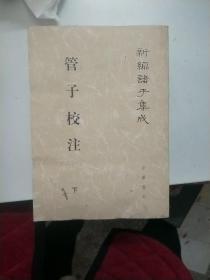 新編諸子集成
管子校注
下
中華書局